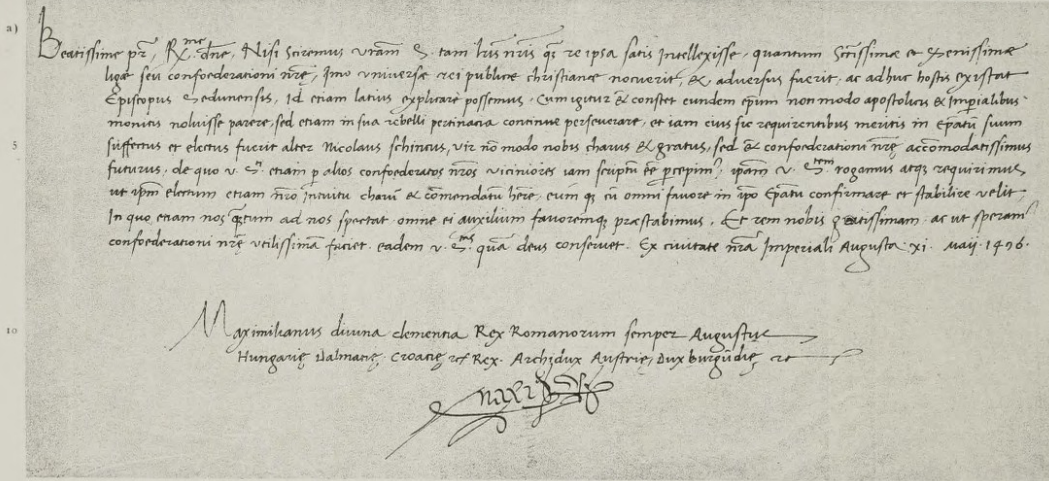 a)
Beatissime pr̃, Rx.me dñe, Nisi Sciremus vrãm S. tam lr̃is nr̃is q̃ re ipsa satis Intellexisse, quantum Sctissimæ et Serenissimæ
ligæ seu confoederationi nr̃ę, Imo vniversæ rei publicæ christianæ nocuerit, &, adversus fuerit, ac adhuc hostis existat
Episcopus Sedunensis, Id etiam latius explicare possemus. Cum igitur & constet eundem ep̃um non modo apostolicis & Imp̃ialibus
monitis noluisse parere, sed etiam in sua rebelli pertinacia continue perseverare, et iam eius sic requirentibus meritis in Ep̃atũ suum
5 suffectus et electus fuerit alter Nicolaus Schincus, vir nõ modo nobis charus & gratus, sed & confoederationi nr̃ę accõmodatissimus
futurus, de quo v. S.ti etiam p alios confoederatos nr̃os viciniores iam scriptũ ẽe p̱cepim9, ip̃am v. S.tem rogamus atq; requirimus
ut ip̃m electum etiam nr̃o Intuitu charũ & cõmendatũ hẽre, eum q; cũ omni favore in ip̃o Ep̃atu confirmare et stabilire velit,
In quo etiam nos q̃tum ad nos spectat omne ei auxilium favoremq; præstabimus. Et rem nobis gratissimam, ac ut speram9
confoederationi nr̃ę vtilissimã faciet eadem v. S.tas quã deus conservet. Ex civitate nr̃a Imperiali Augusta xi. Maij. 1496.
10 Maximilianus divina clementia Rex Romanorum semper Augustus
Hungarię Dalmatię, Croatię &c Rex. Archidux Austrię, Dux burgũdię &c